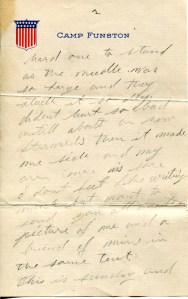 2
CAMP FUNSTON
hard one to stand
as the needle was
so large and they
stuck it so deep
didn't hurt so bad
untill about an hour
then it made
me sick and my
arm was sore
I dont feel like writing
much but want to
send you a
picture of me and a
friend of mine in
the same tent.
this is sunday and